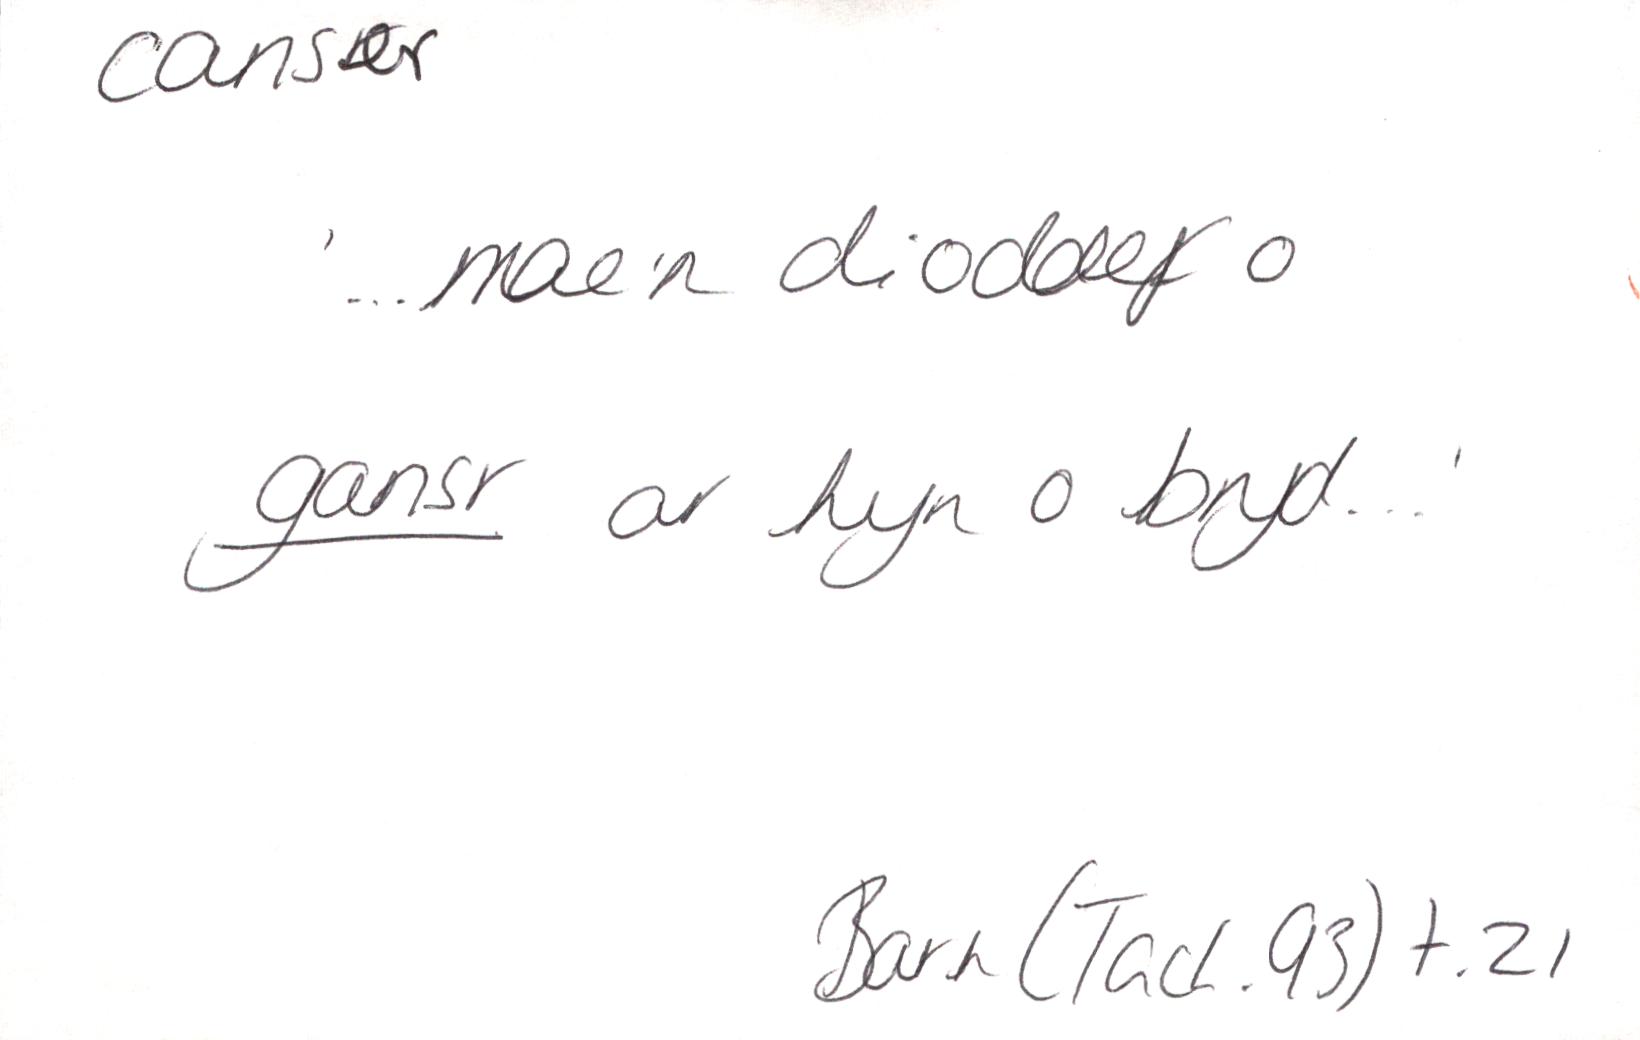 canser
'...mae'n dioddef o
gansr ar hyn o bryd...'
Barn (Tach. 93) t. 21